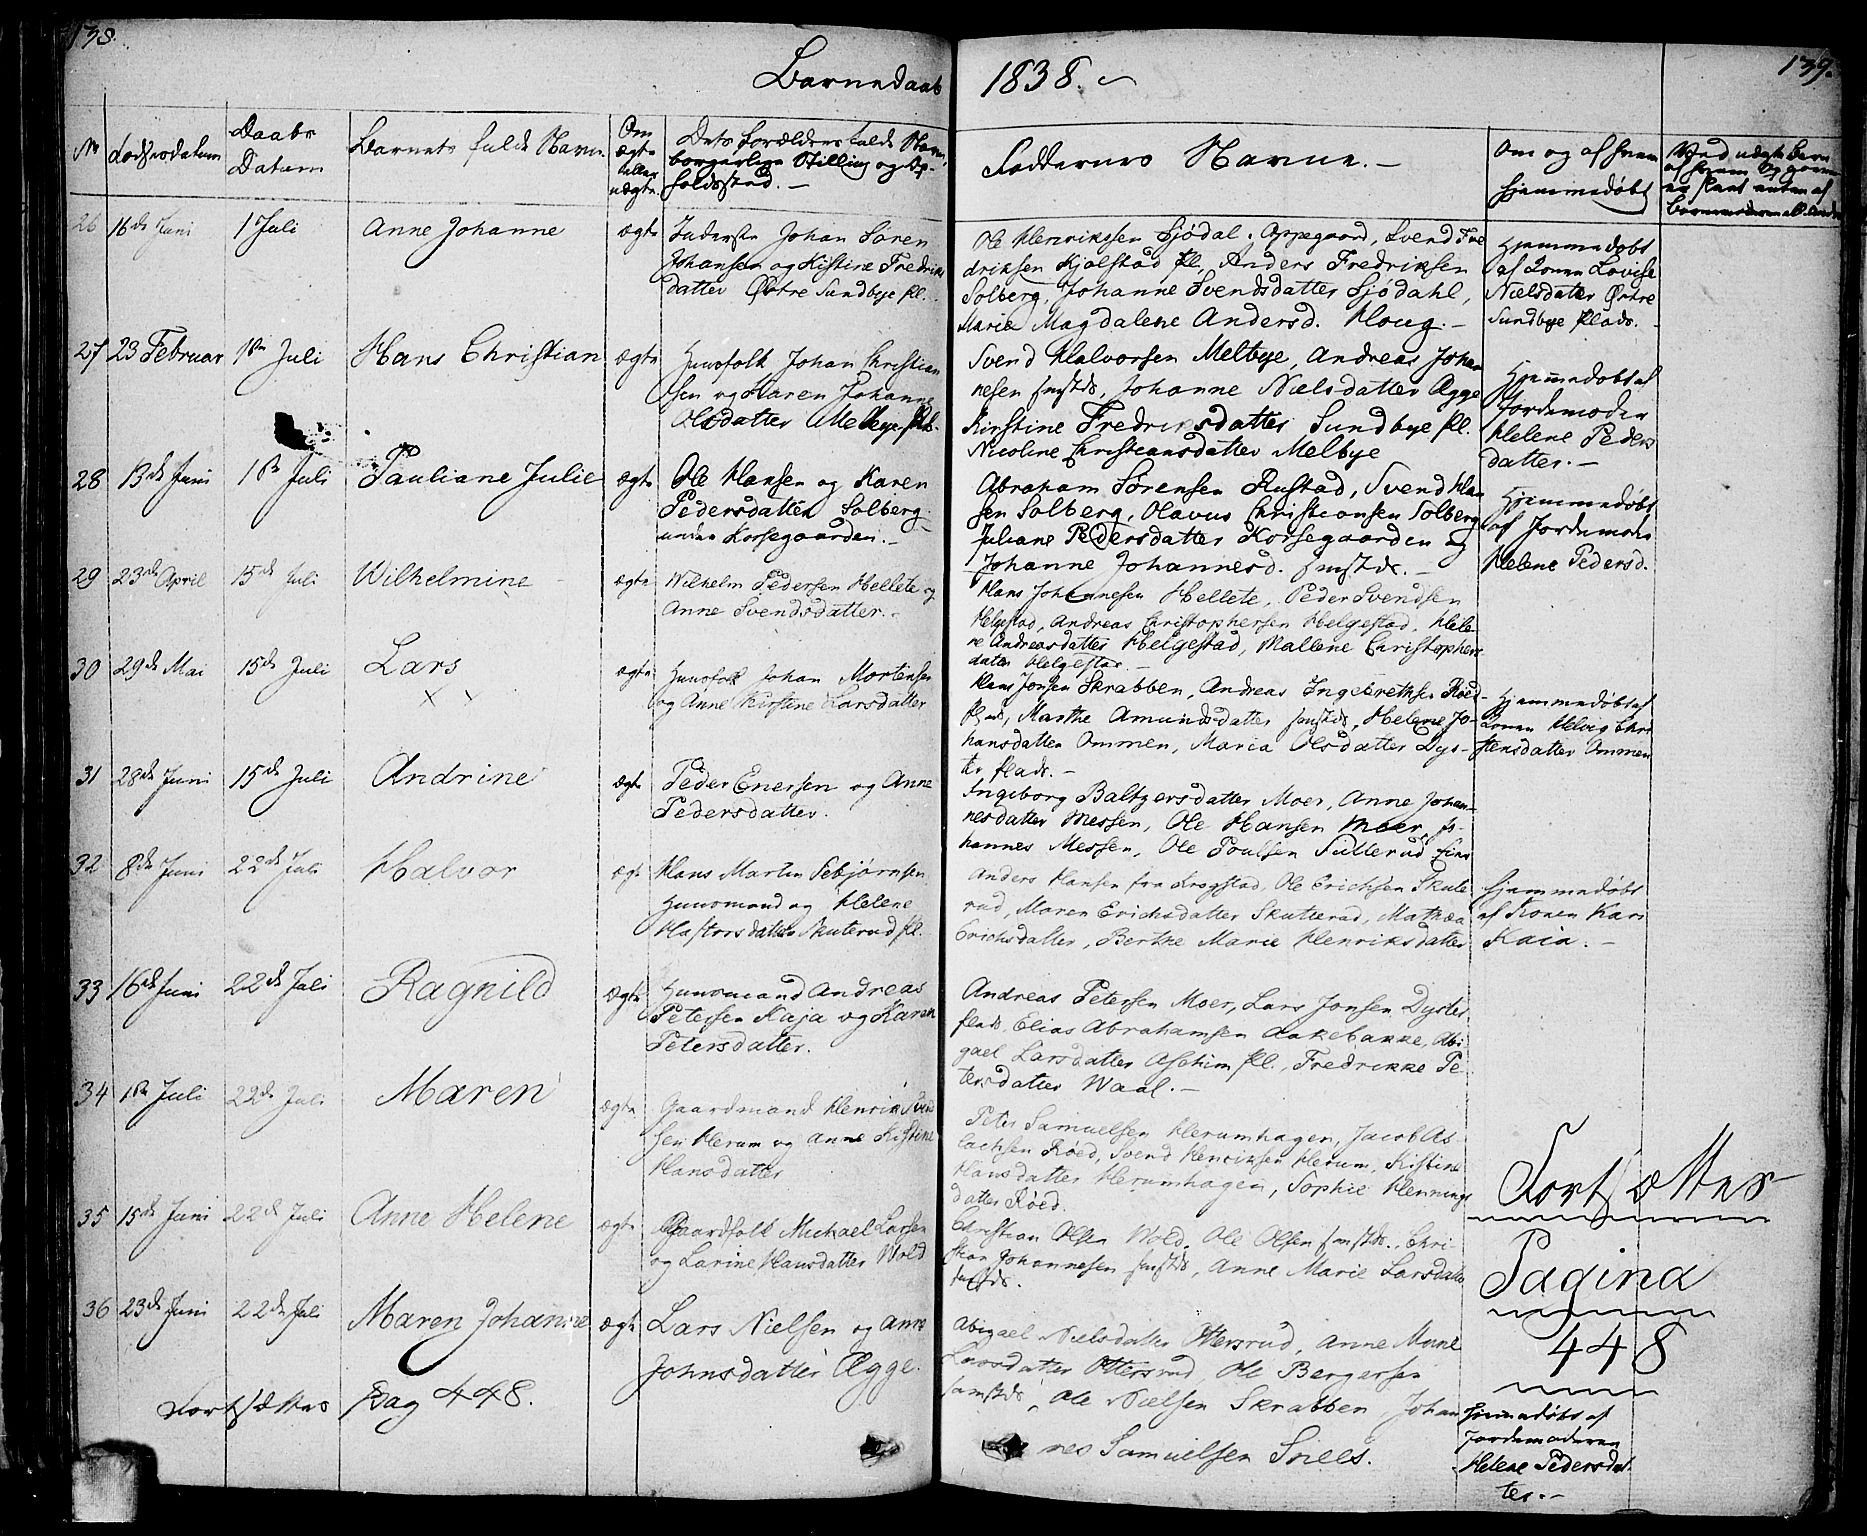 138.
Barnedaab
1838.
139.
No
Fødselsdatum
Daabs
Datum
Barnets fulde Navn.
Om
ægte
eller
uægte.
Dets Forældres fulde Navn,
borgerlige Stilling og Op-
holdssted. —
Faddernes Navne. —
Om og af hvem
hjemmedøbt
26
16de Juni
1 Juli
Anne Johanne
ægte
Inderste Johan Søren
Johansen og Kistine Fredriks
datter Østre Sundbye pl.
Ole Henrikssen Sjödal. Oppegaard, Svend Fre
driksen Kjølstad pl, Anders Fredriksen
Solberg, Johanne Svendsdatter Sjödahl,
Marie Magdalene Andersd. Houg. —
Hjemmedøbt
af Konen Lovise
Nielsdater Østre
Sundbye Plads. —
27
23 Februar
1ste Juli
Hans Christian
ægte
Huusfolk Johan Christian
sen og Karen Johanne
Olsdatter Melbye pl.
Svend Halvorsen Melbye, Andreas Johan
nesen smstds, Johanne Nielsdatter Agge
Kirstine Fredriksdatter Sundbye pl.
Nicoline Christiansdatter Melbye
Hjemmedøbt af
Jordemoder
Helene Peders
datter. —
28
13de Juni
1ste Juli
Pauliane Julie
ægte
Ole Hansen og Karen
Pedersdatter Solberg
under Korsegaarden. —
Abraham Sørensen Rustad, Svend Han
sen Solberg, Olavus Christiansen Solberg
Juliane Pedersdatter Korsegaarden og
Johanne Johannesd. smstds. —
Hjemmedøbt
af Jordemoder
Helene Pedersd.
29
23de April
15de Juli
Wilhelmine
ægte
Wilhelm Pedersen Hellete og
Anne Svendsdatter. —
Hans Johannesen Hellete, Peder Svendsen
Helgestad, Andreas Christophersen Helgestad, Hele-
ne Andreasdatter Helgestad, Mallene Christophers
datter Helgestad —
30
29de Mai
15de Juli
Lars
ægte
Huusfolk Johan Mortensen
og Anne Kirstine Larsdatter
Hans Jonsen Skrabben, Andreas Ingebrethsen Röed-
Plads, Marthe Amundsdatter smstds, Helene Jo-
hansdatter Ommen, Maria Olsdatter Dys-
ter Plads. —
Hjemmedøbt af
Konen Helvig Chri
stensdatter Ommen
31
28de Juni
15de Juli
Andrine
ægte
Peder Enersen og Anne
Pedersdatter.
Ingeborg Baltzersdatter Moer, Anne Johan-
nesdatter Messen, Ole Hansen Moer, Jo-
hannes Messen, Ole Poulsen Sutterud
32
8de Juni
22de Juli
Halvor
ægte
Hans Martin Sebjørnsen
Huusmand og Helene
Haftorsdatter Skuterud pl.
Anders Hansen fra Krogstad, Ole Erichsen Skute
rud, Maren Erichsdatter Skutterud, Mathea
Erichsdatter, Berthe Marie Henriksdatter
Hjemmedøbt
af Konen Kari
Kaia. —
33
16de Juni
22de Juli
Ragnild
ægte
Huusmand Andreas
Petersen Kaja og Karen
Petersdatter.
Andreas Petersen Moer, Lars Jonsen Dyster
plads, Elias Abrahamsen Aakebakke, Abi
gael Larsdatter Aschim pl., Fredrikke Pe
tersdatter Waal. —
34
1ste Juli
22de Juli
Maren
ægte
Gaardmand Henrik Svend
sen Herum og Anne Kistine
Hansdatter
Peter Samuelsen Herumhagen, Jacob As-
lachsen Röed, Svend Henriksen Herum, Kistine
Hansdatter Herumhagen, Sophie Hennings
datter Röed.
35
15de Juni
22de Juli
Anne Helene
ægte
Gaardfolk Michael Larsen
og Larine Hansdatter Wold
Christian Olsen Wold, Ole Olsen smstds., Chri-
stian Johannesen smstds, Anne Marie Larsdatter
smstds.
36
23de Juni
22de Juli
Maren Johanne
ægte
Lars Nielsen og Anne
Johnsdatter Ægge.
Abigael Nielsdatter Ottersrud, Anne Marie
Larsdatter Ottersrud, Ole Bergersen
samstds, Ole Nielsen Skrabben, Johan
nes Samuelsen Snees.
Fortsættes
Pagina
448
Hjemmedøbt af
Jordemoderen
Helene Pedersdat
ter. —
Fortsættes Pag 448.